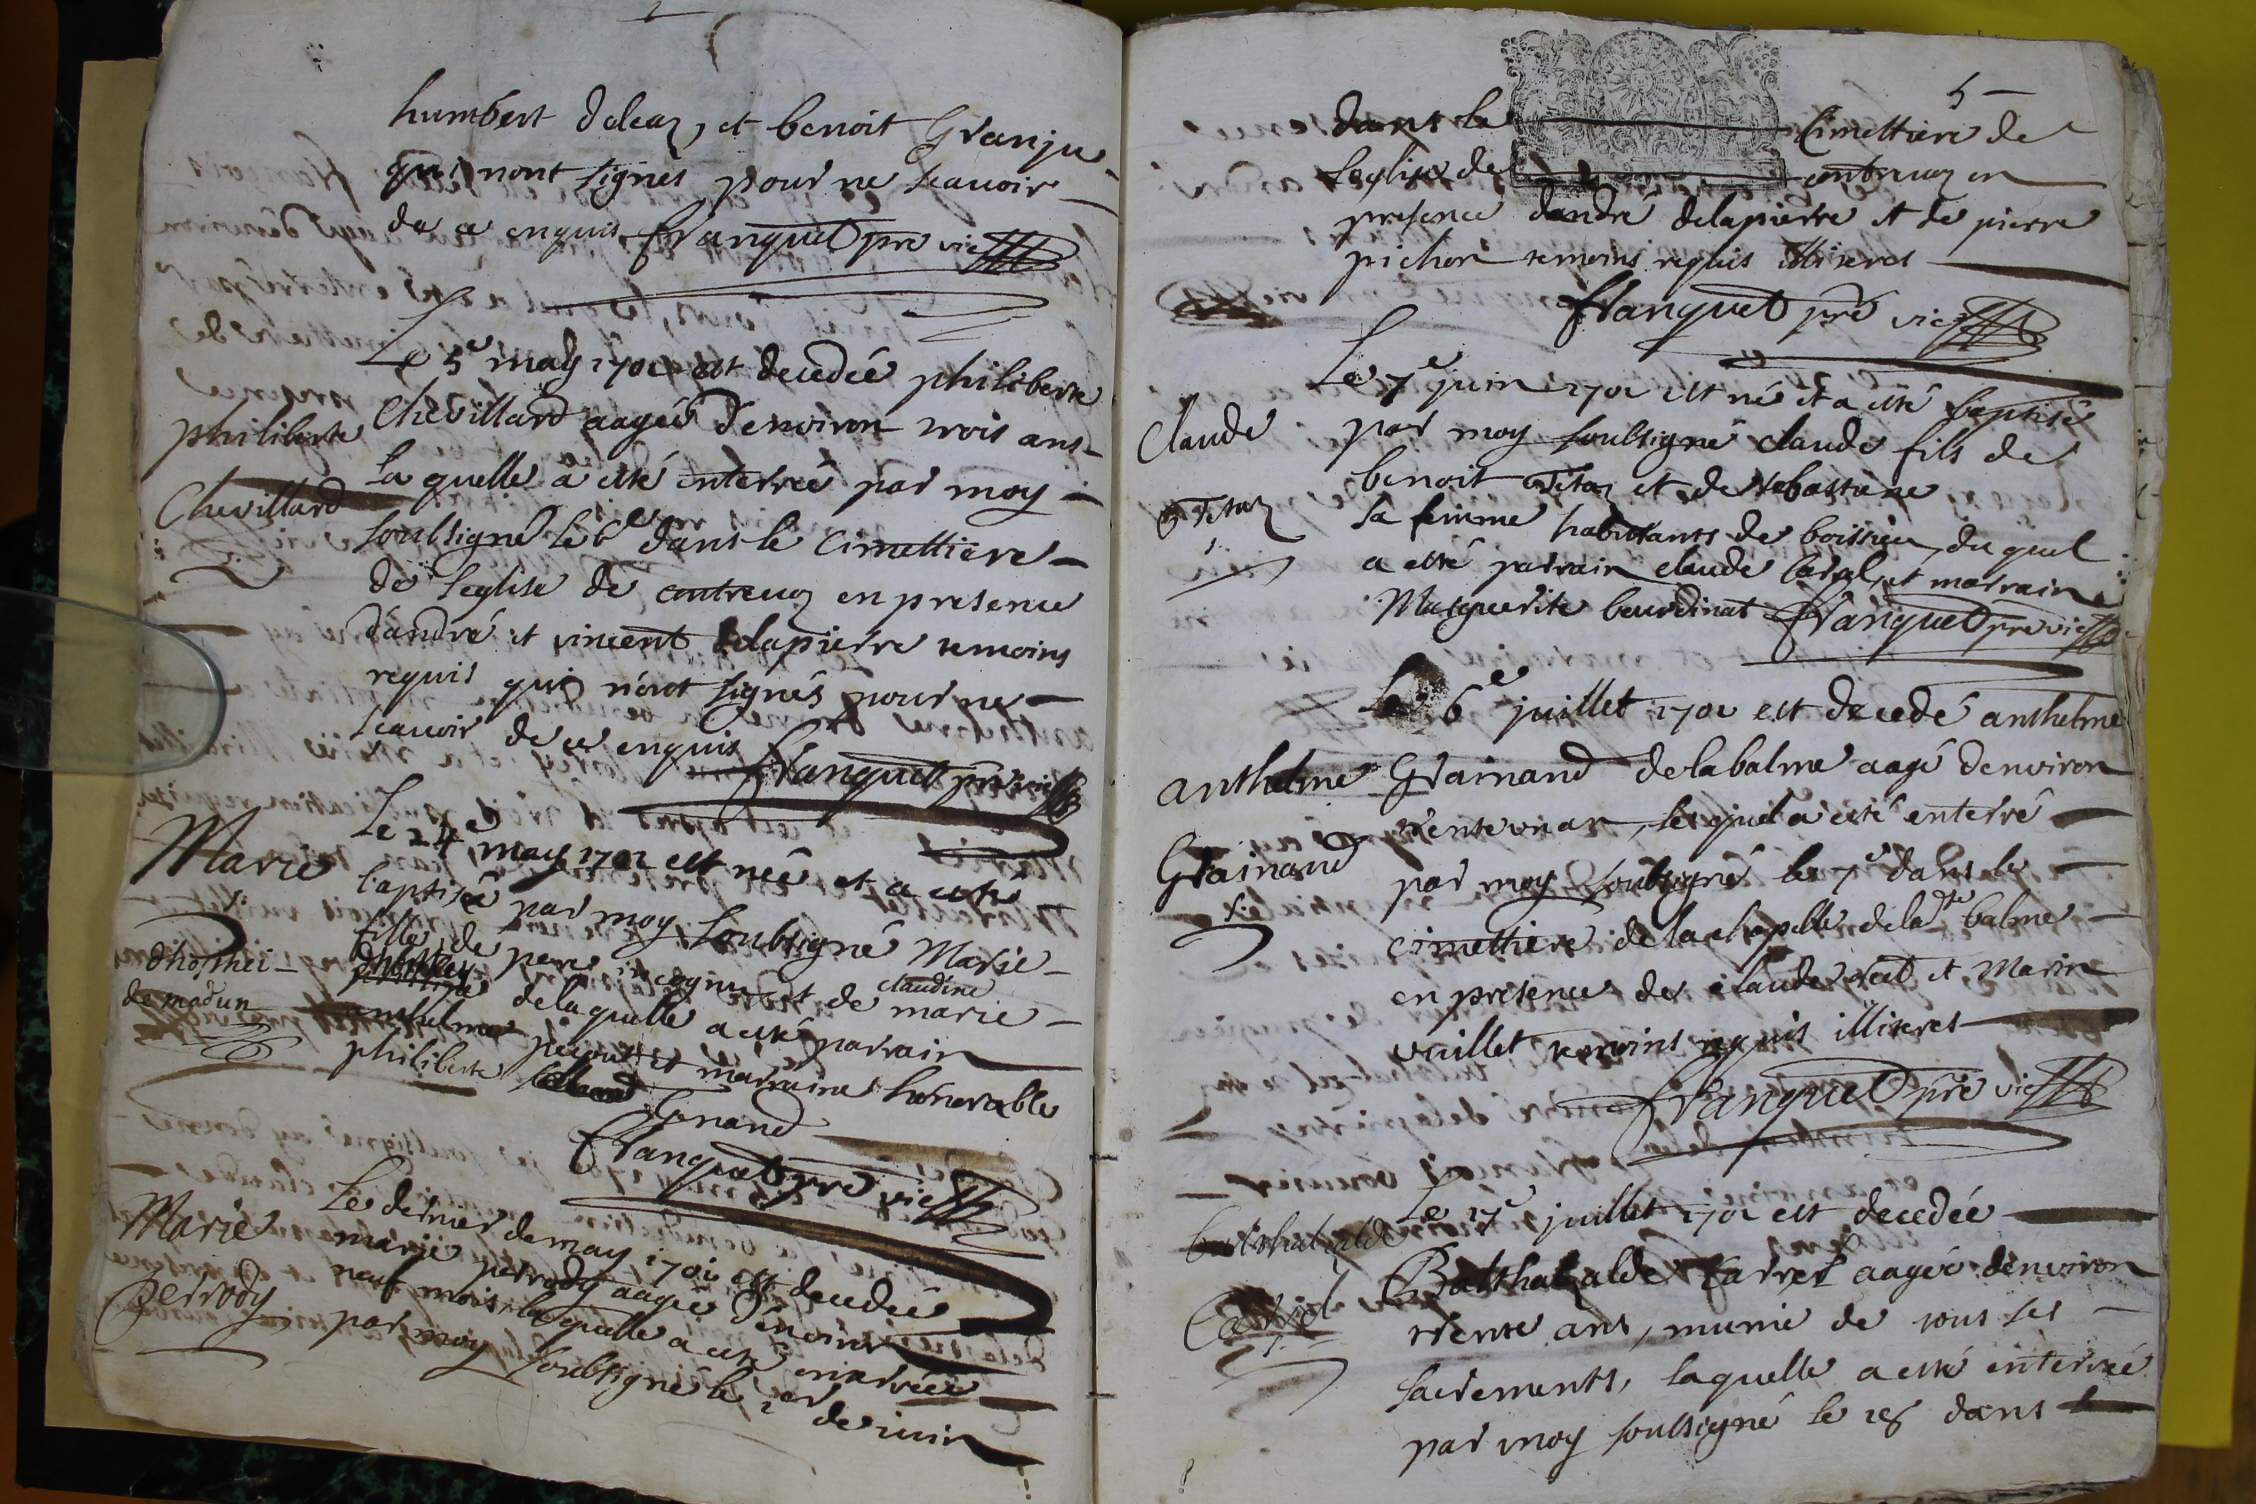 humbert deleaz, et benoit Granju
qui nont signés pour ne scauoir
de ce enquis franquet pre vic
Le 5e may 1701 est decedée philiberte
Chevillard aagée d'environ trois ans
philiberte
Chevillard
la quelle à esté enterrée par moy
soubsigné le 6e dans le cimettiere
de l'eglise de contrevoz en presence
d'andré et vincent delapierre temoins
requis qui n'ont signés pour ne
scauoir de ce enquis franquet pre vic
Marie
Le 24e may 1701 est née et a esté
baptisée par moy soubsigné Marie
fille de pere incognu et de marie claudine
dhosthei
de madun
de laquelle a esté parrain
anthelme et marraine honorable
philiberte
Genand
franquet pre vic
Marie
perrody
Le dernier de may 1701 est decedée
marie perrody aagée d'environ
neuf mois laquelle a esté enterrée
par moy soubsigné le 1er de iuin
5
dans le cimettiere de
l'eglise de contrevoz en
presence d'andré delapierre et de pierre
pichon temoins requis illiteres
franquet pre vic
Le 7e juin 1701 est né et a esté baptisé
Claude
par moy soubsigné claude fils de
benoit et de sebastiane
sa femme habitants de boissieu, du quel
a esté parrain claude et marraine
Marguerite bourdinat franquet pre vic
Le 6e juillet 1701 est decedé anthelme
anthelme
Grainand
Grainand de la balme aagé d'environ
trente un an, lequel a esté enterré
par moy soubsigné le 7e dans le
cimettiere de la chapelle de lade balme
en presence de claude et Marin
vuillet temoins requis illiteres
franquet pre vic
Le 17e juillet 1701 est decedée
Balthazalde Carrel aagée d'environ
balthazalde
Carrel
trente ans, munie de tous ses
sacrements, laquelle a esté enterrée
par moy soubsigné le 18 dans le